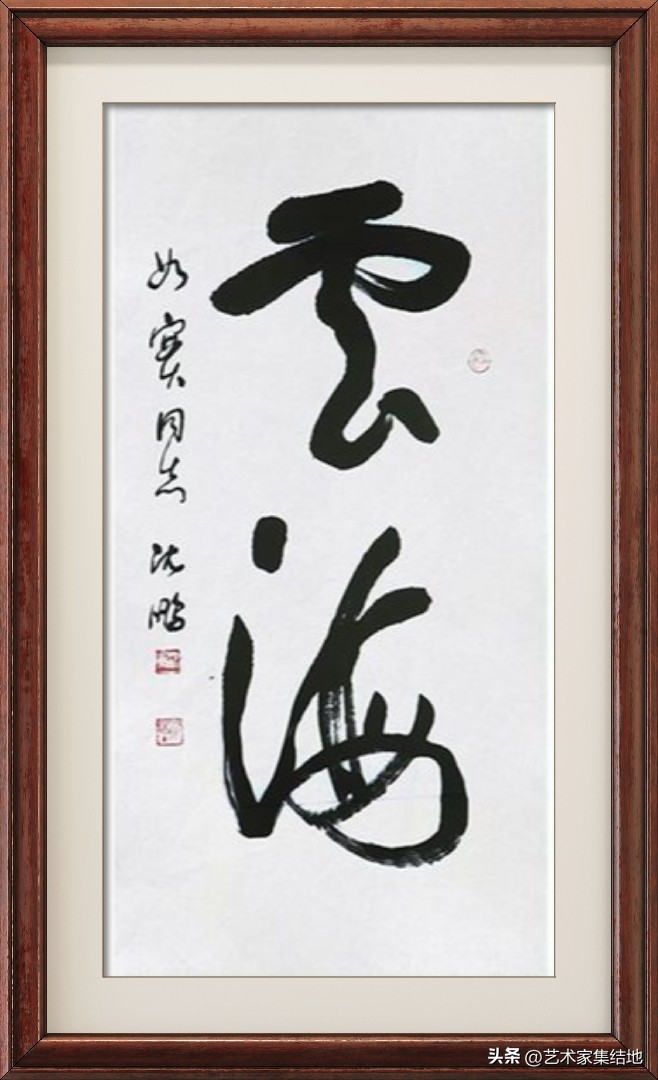 雲海
如寶同志 沈鵬
头条 @艺术家集结地